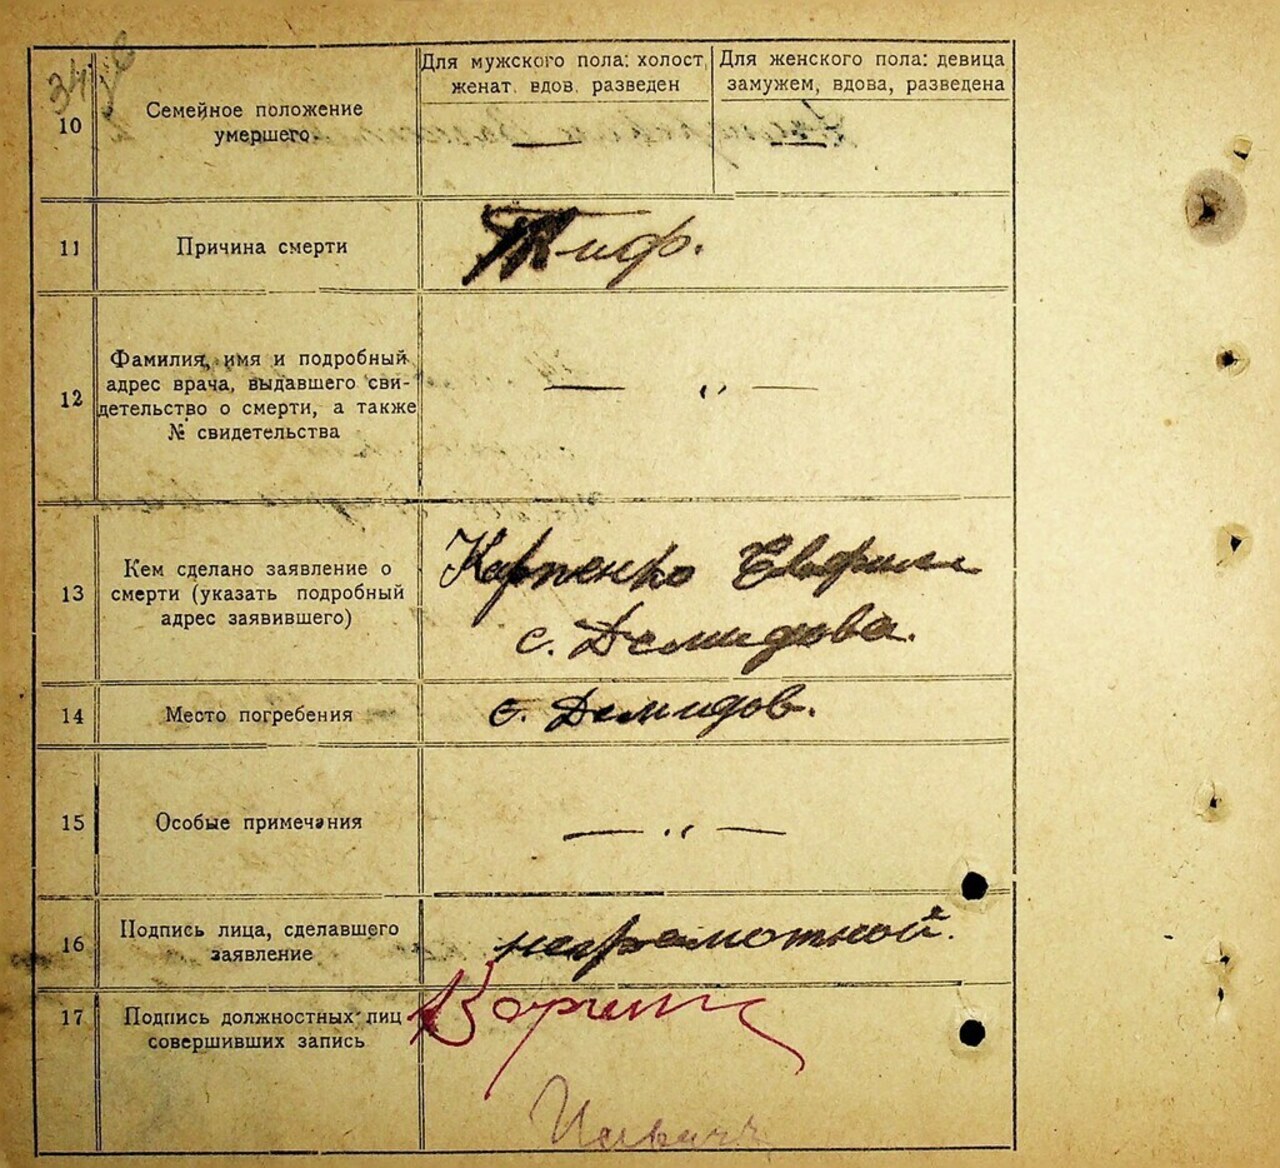 34
10
Семейное положение
умершего.
Для мужского пола: холост,
женат, вдов, разведен
Для женского пола: девица
замужем, вдова, разведена
—
—
11
Причина смерти
Тиф.
12
Фамилия, имя и подробный
адрес врача, выдавшего сви-
детельство о смерти, а также
№ свидетельства
— " —
13
Кем сделано заявление о
смерти (указать подробный
адрес заявившего)
Карпенко
с. Демидова.
14
Место погребения
с. Демидов.
15
Особые примечания
— " —
16
Подпись лица, сделавшего
заявление
неграмотной.
17
Подпись должностных лиц
совершивших запись